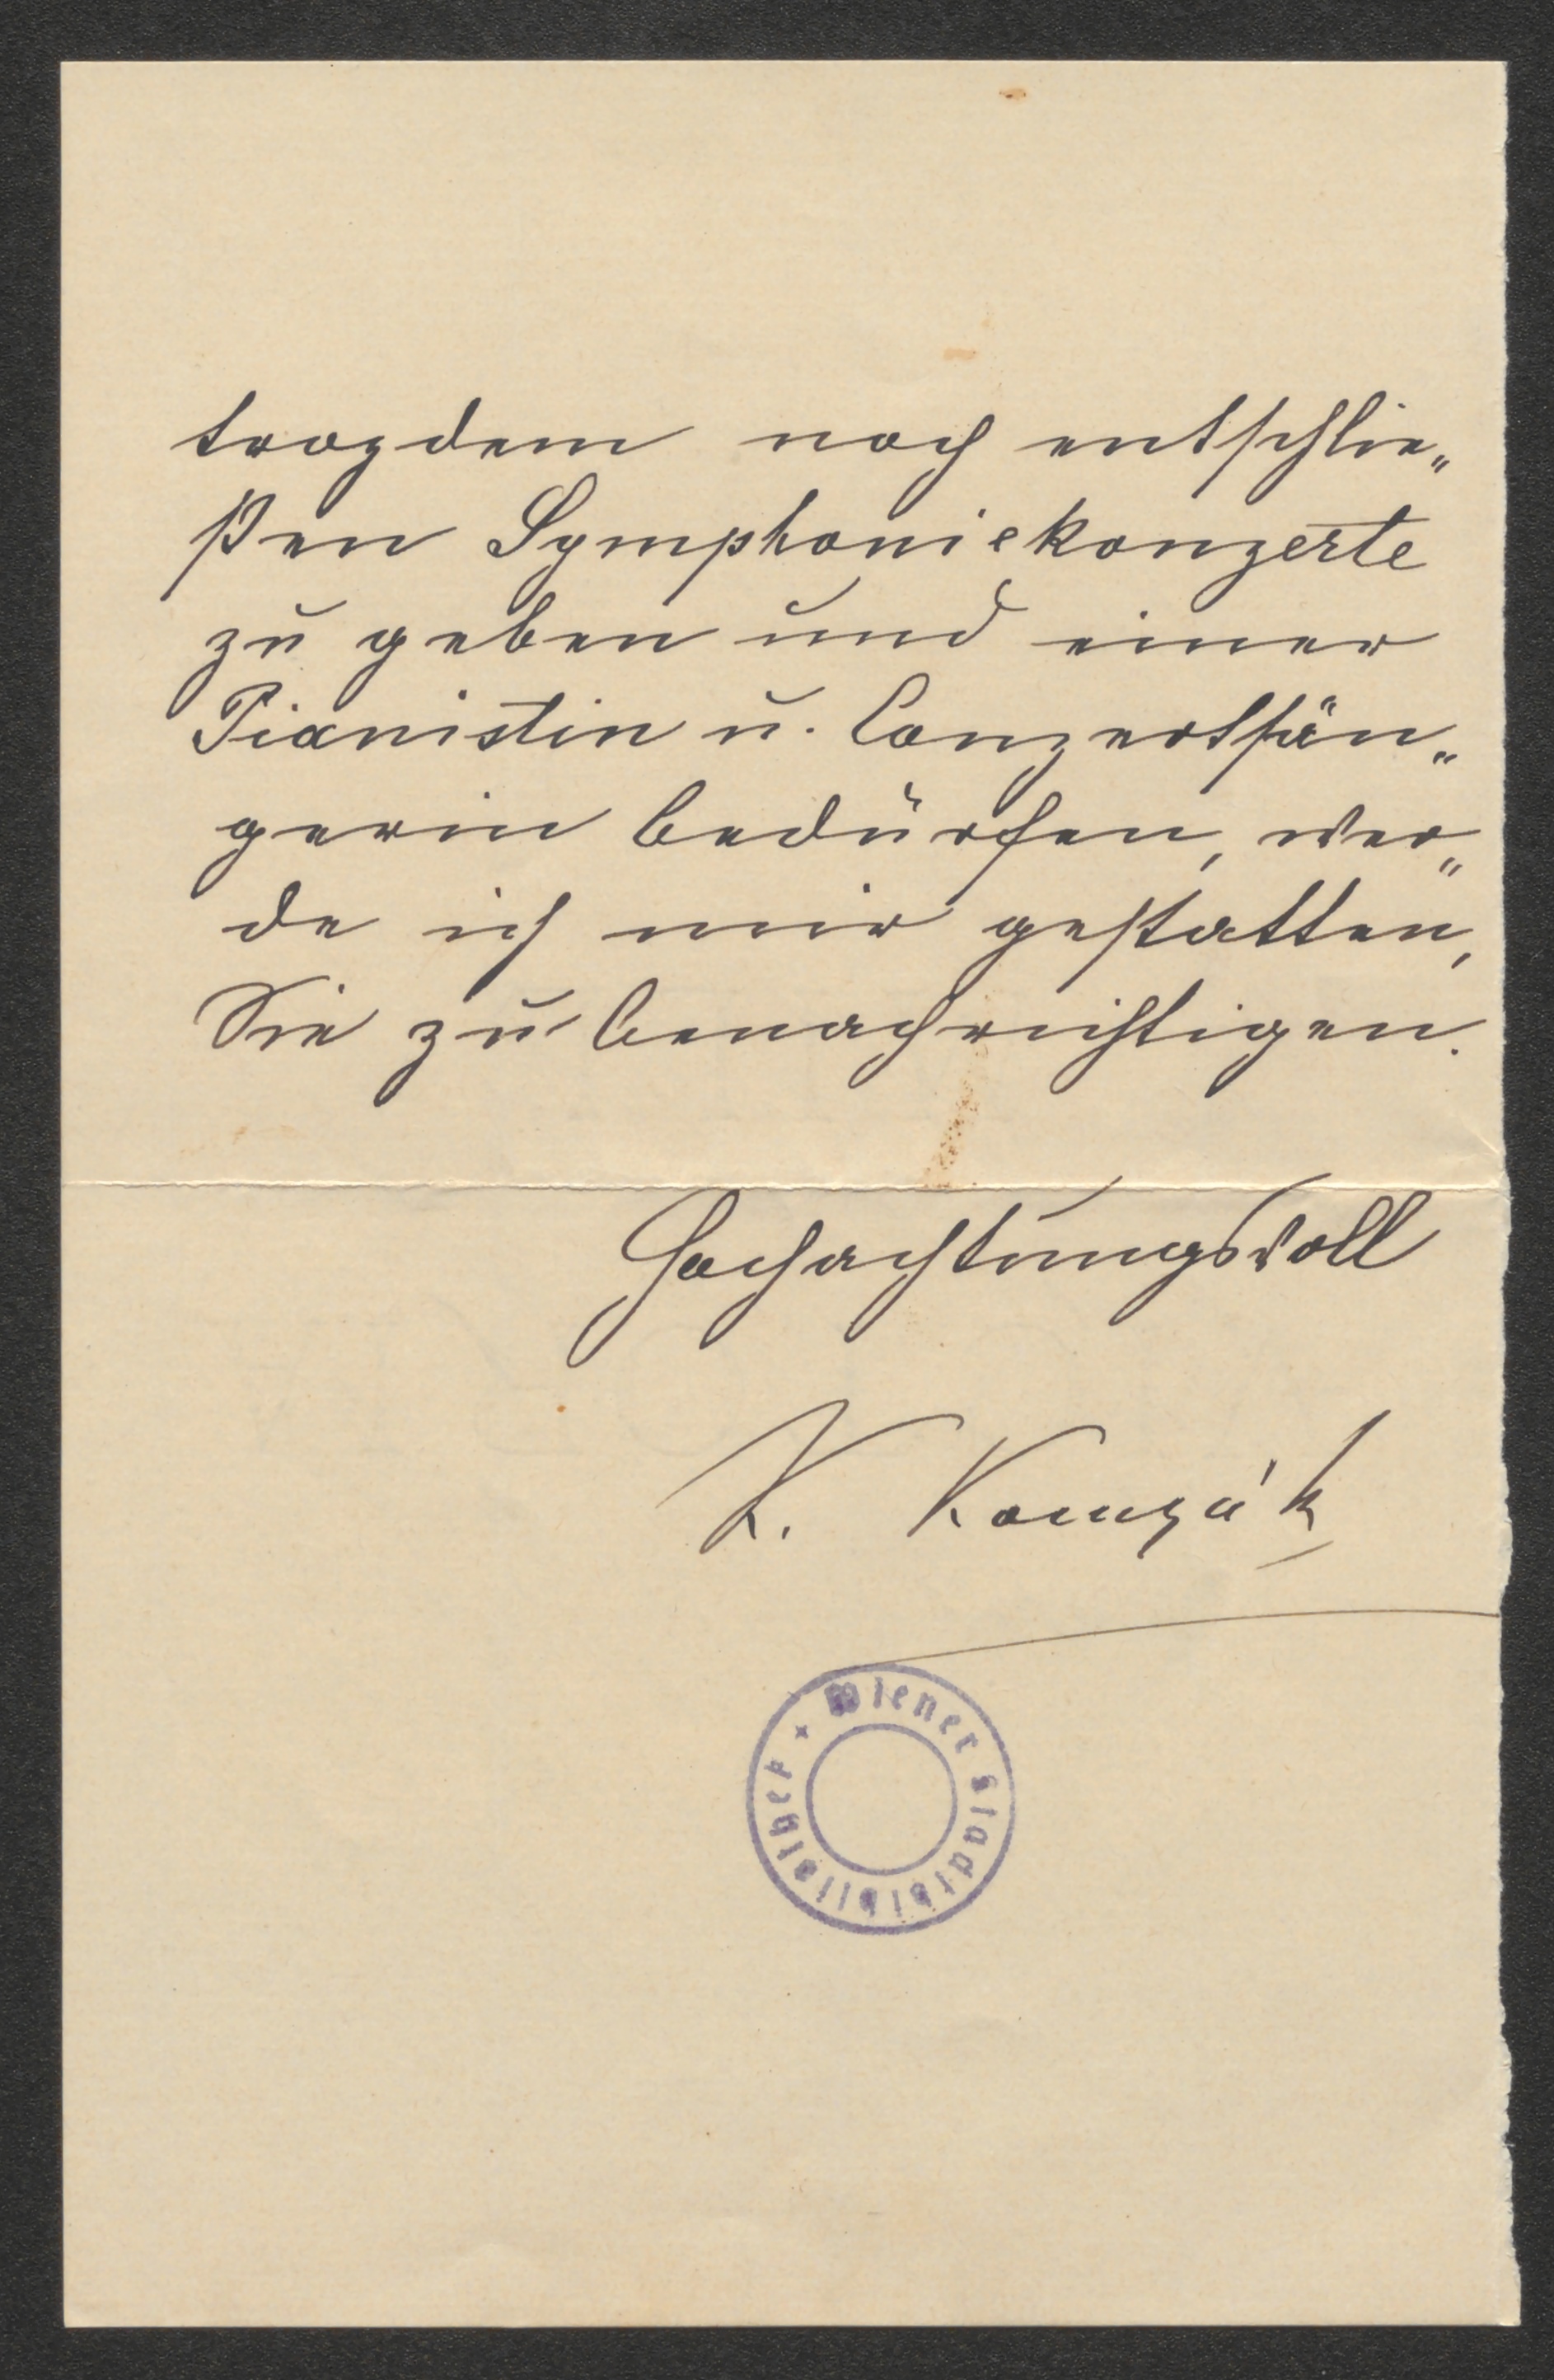 trozdem noch entschlie„
ßen Symphoniekonzerte
zu geben und einer
Pianistin u. Conzertsän„
gerin bedürfen, wer„
de ich mir gestatten,
Sie zu benachrichtigen.
Hochachtungsvoll
K. Komzák
Wiener Stadtbibliothek